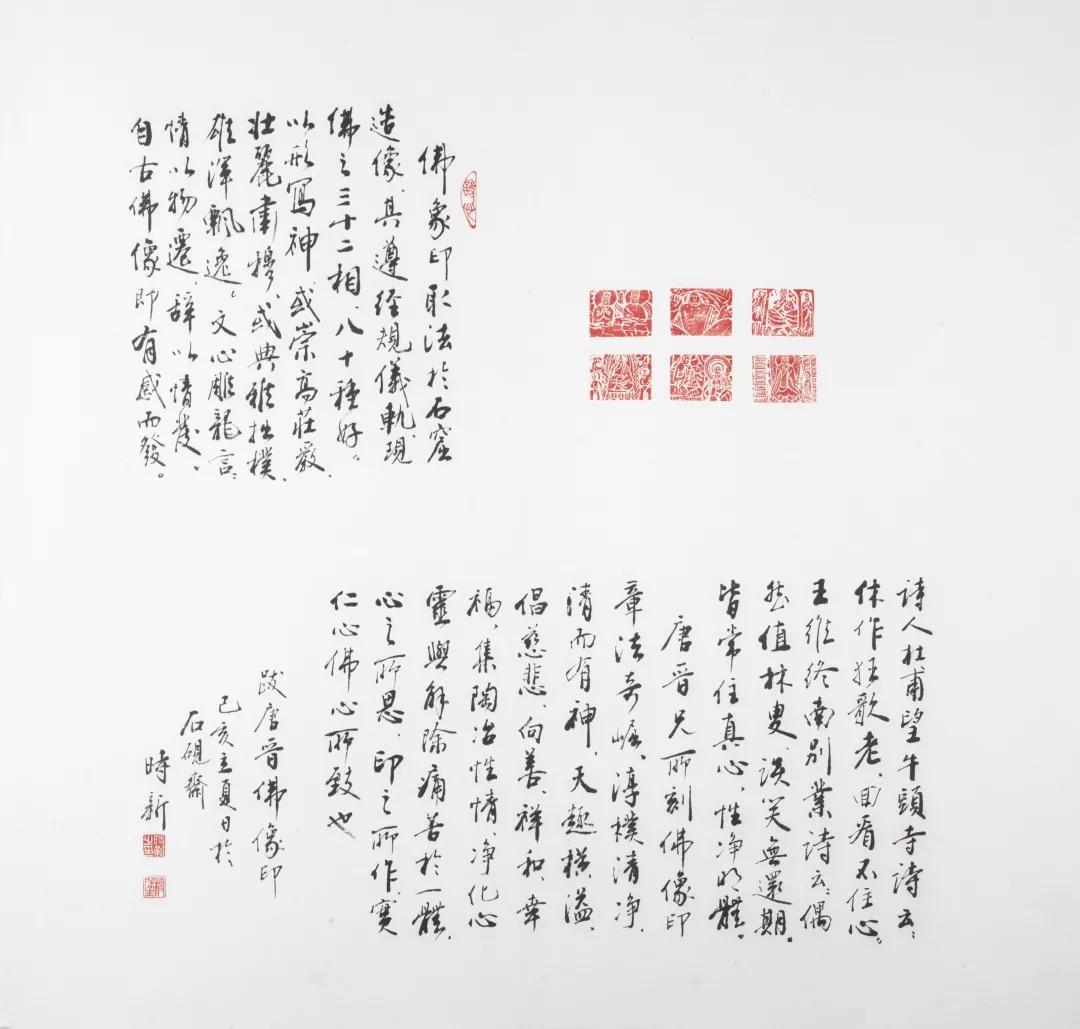 佛象印取法於石窟
造像、其遵经规儀軌現
佛之三十二相、八十種好。
以形寫神、或崇高莊嚴、
壯麗肅穆、或典雅拙樸、
雄渾飄逸。文心雕龍言：
情以物遷、辭以情發。
自古佛像即有感而發。
詩人杜甫望牛頭寺詩云：
休作狂歌老、回看不住心。
王維终南別業詩云：偶
然值林叟、談笑無還期。
皆常住真心、性净明體。
唐晋兄所刻佛像印
章法奇崛、淳樸清净、
清而有神、天趣橫溢、
倡慈悲、向善、祥和、幸
福、集陶冶性情、净化心
靈與解除痛苦於一體、
心之所思、印之所作、實
仁心佛心所致也
跋唐晋佛像印
己亥立夏日於
石硯齋
時新